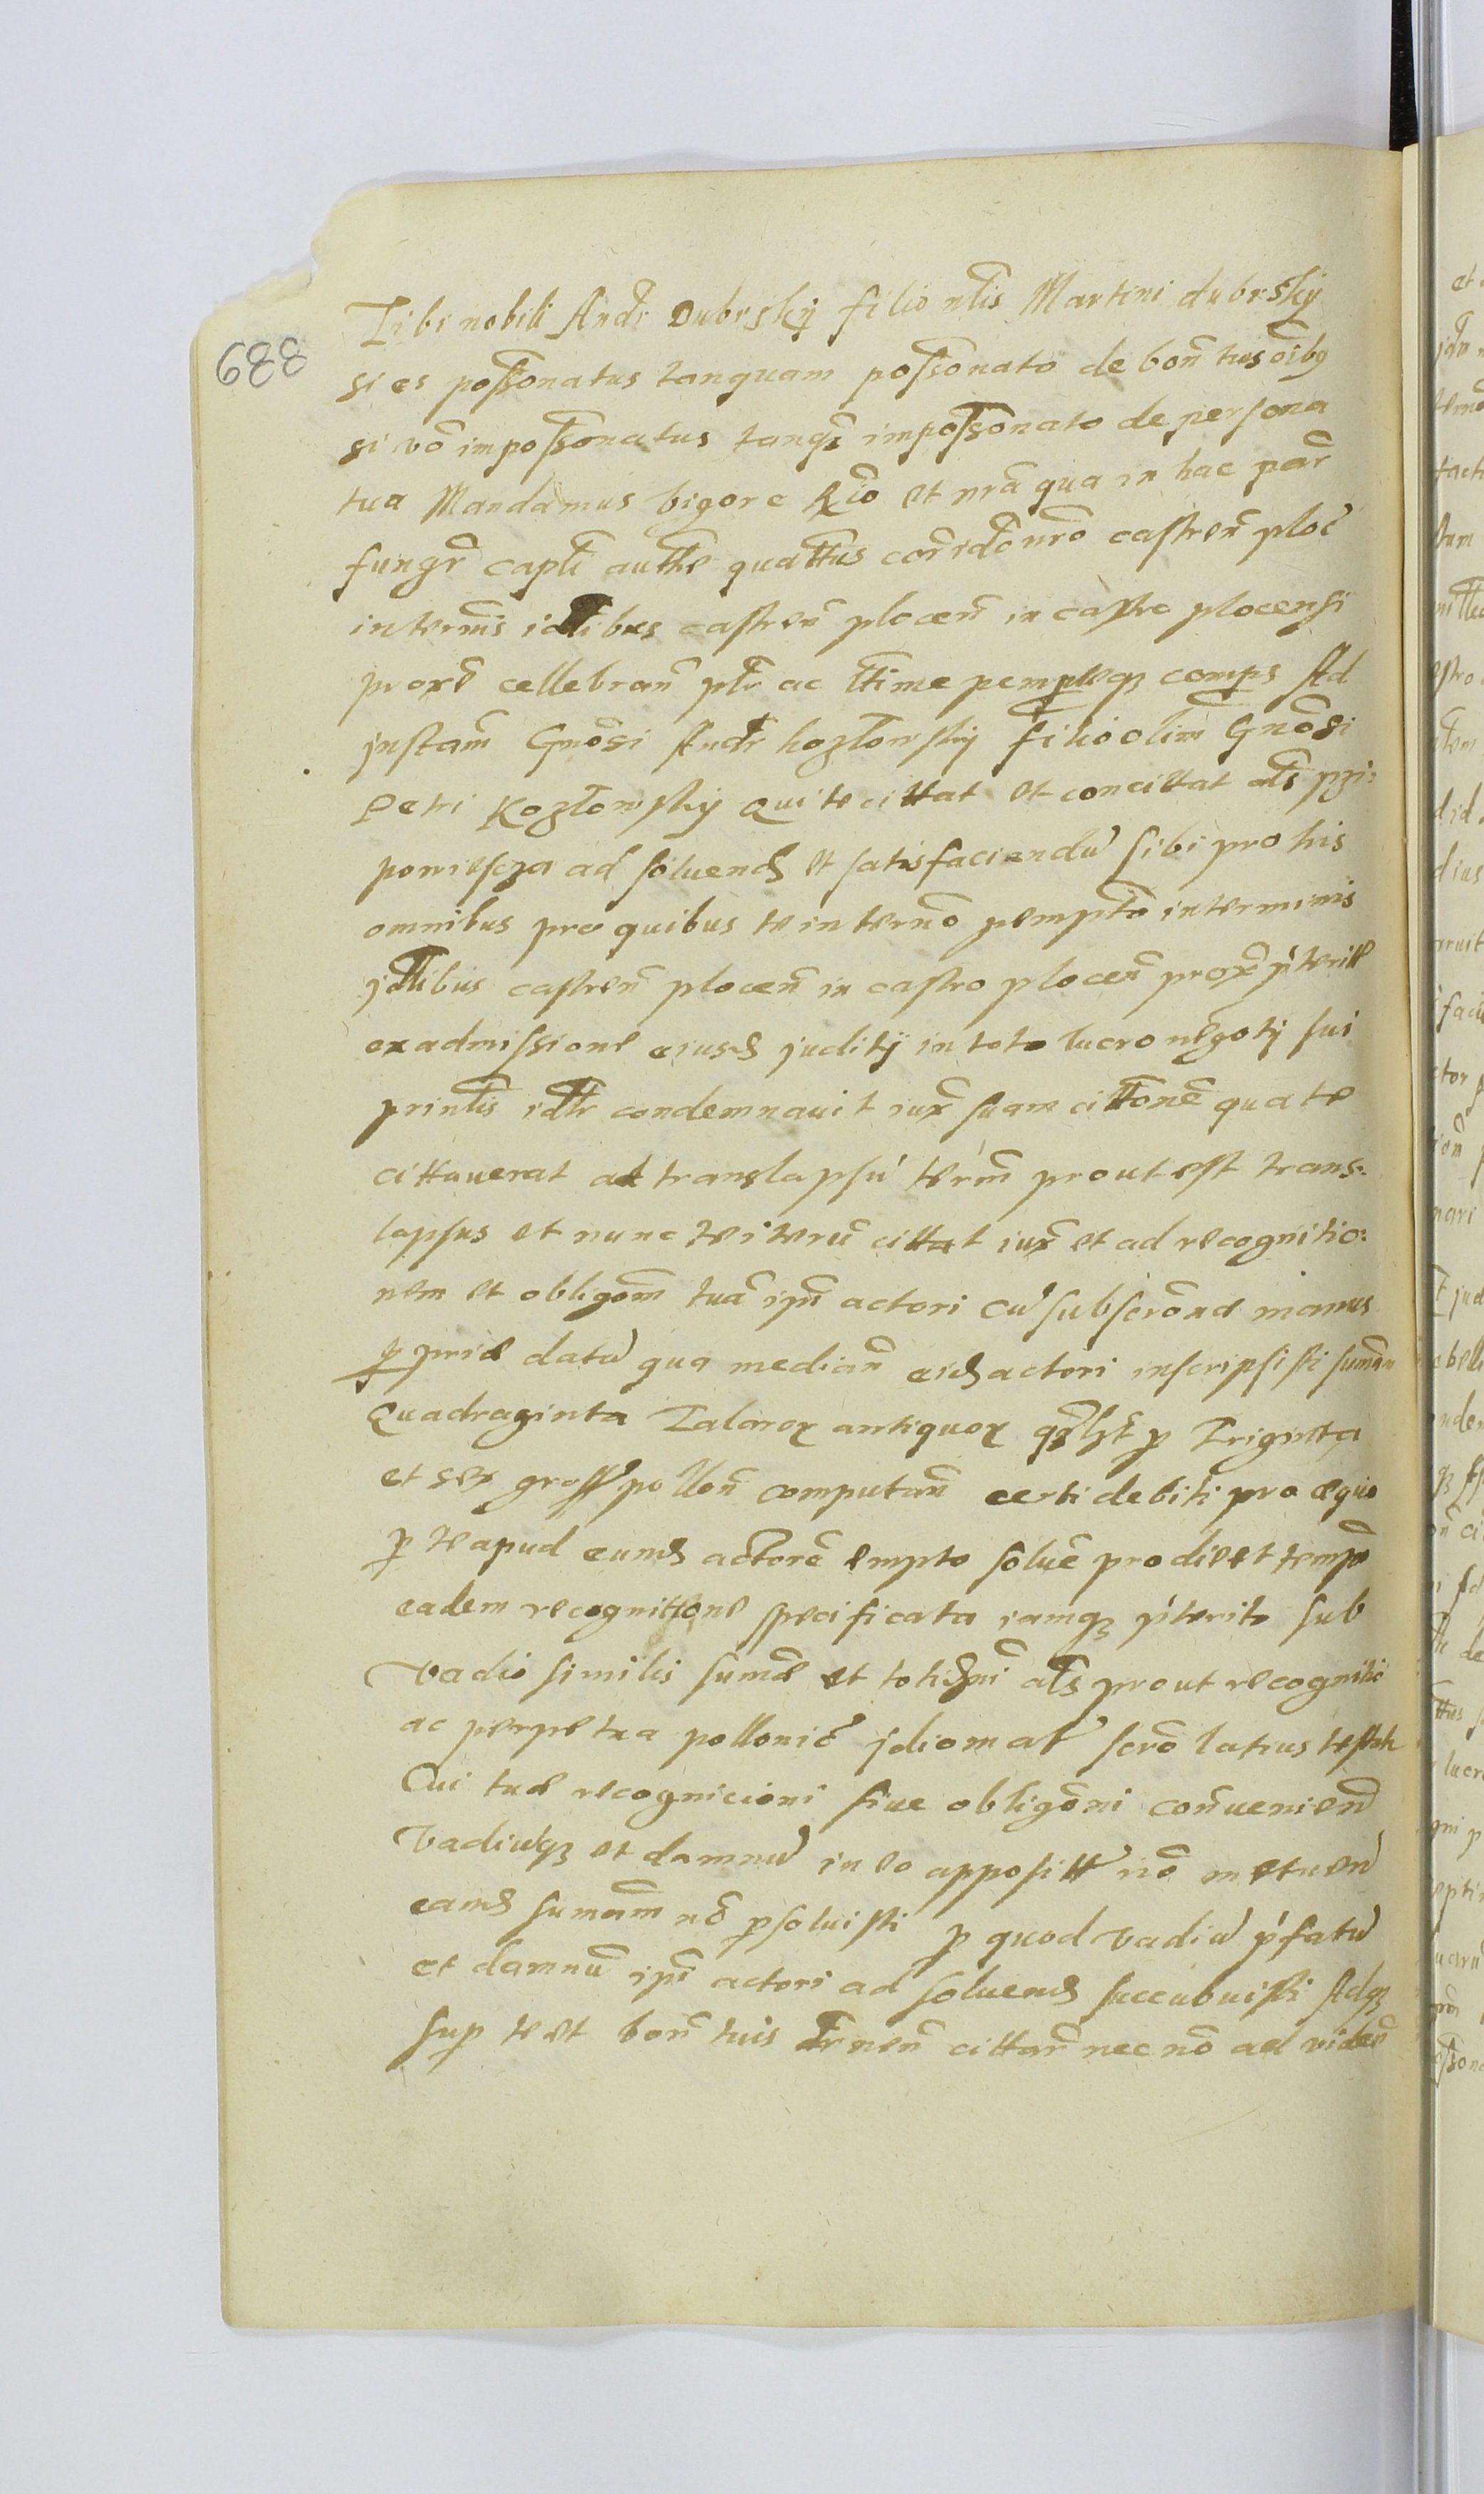 688
Tibi nobili Andr Dubrskÿ filio nlis Martini dubrskÿ
si es possonatus tanquam possonato de bon tuis oibg
si vo impossonatus tanqz impossonato de persona
tua Mandamus vigore et nra qua in hac par
fungr capli authe quattus cor nro castren ploc
in termis idlibus castren plocen in castro plocensi
proxe cellebran plr ac ltime pempleqz comprs Ad
jnstam Gnosi Andr kozłowskÿ filio olim Gnosi
Petri Kozłowskÿ qui te cittat et concittat als przi:
powiescza ad soluend et satisfaciendu sibi pro his
omnibus pro quibus te in terno pempto in terminis
jdlibus castren plocen in castro plocen prox pterit
ex admissione eiusd juditÿ in toto lucro negotÿ sui
prinlis idlr condemnauit iux suam cittone qua te
cittauerat ad translapsu term prout est trans:
lapsus et nunc te iteru cittat iux et ad recognitio:
nem et obligom tua ipn actori cu subscrone manus
pprie datu qua median eid actori inscripsisti suman
Quadraginta Talaror antiquor qzlzt p Triginta
et sex gross pollon computan certi debiti pro equo
p te apud eumd actore empto solue pro die et tempe
eadem recognittone specificata iamqz pterito sub
vadio similis sume et totidni als prout recognitio
ac perpetua pollonic jdiomat scro latius testatr
Cui tue recognicioni siue obligoni conuenien
Vadiuqz et damnu in eo apposit no metuen
eamd sumam no psoluisti p quod vadiu pfatu
et damnu ipi actori ad soluend succubuisti Adqz
sup te et bon tuis cittar nec no ad viden